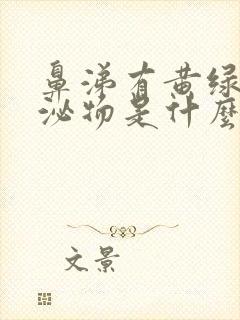 鼻涕有黄绿
泌物是什麽
文景